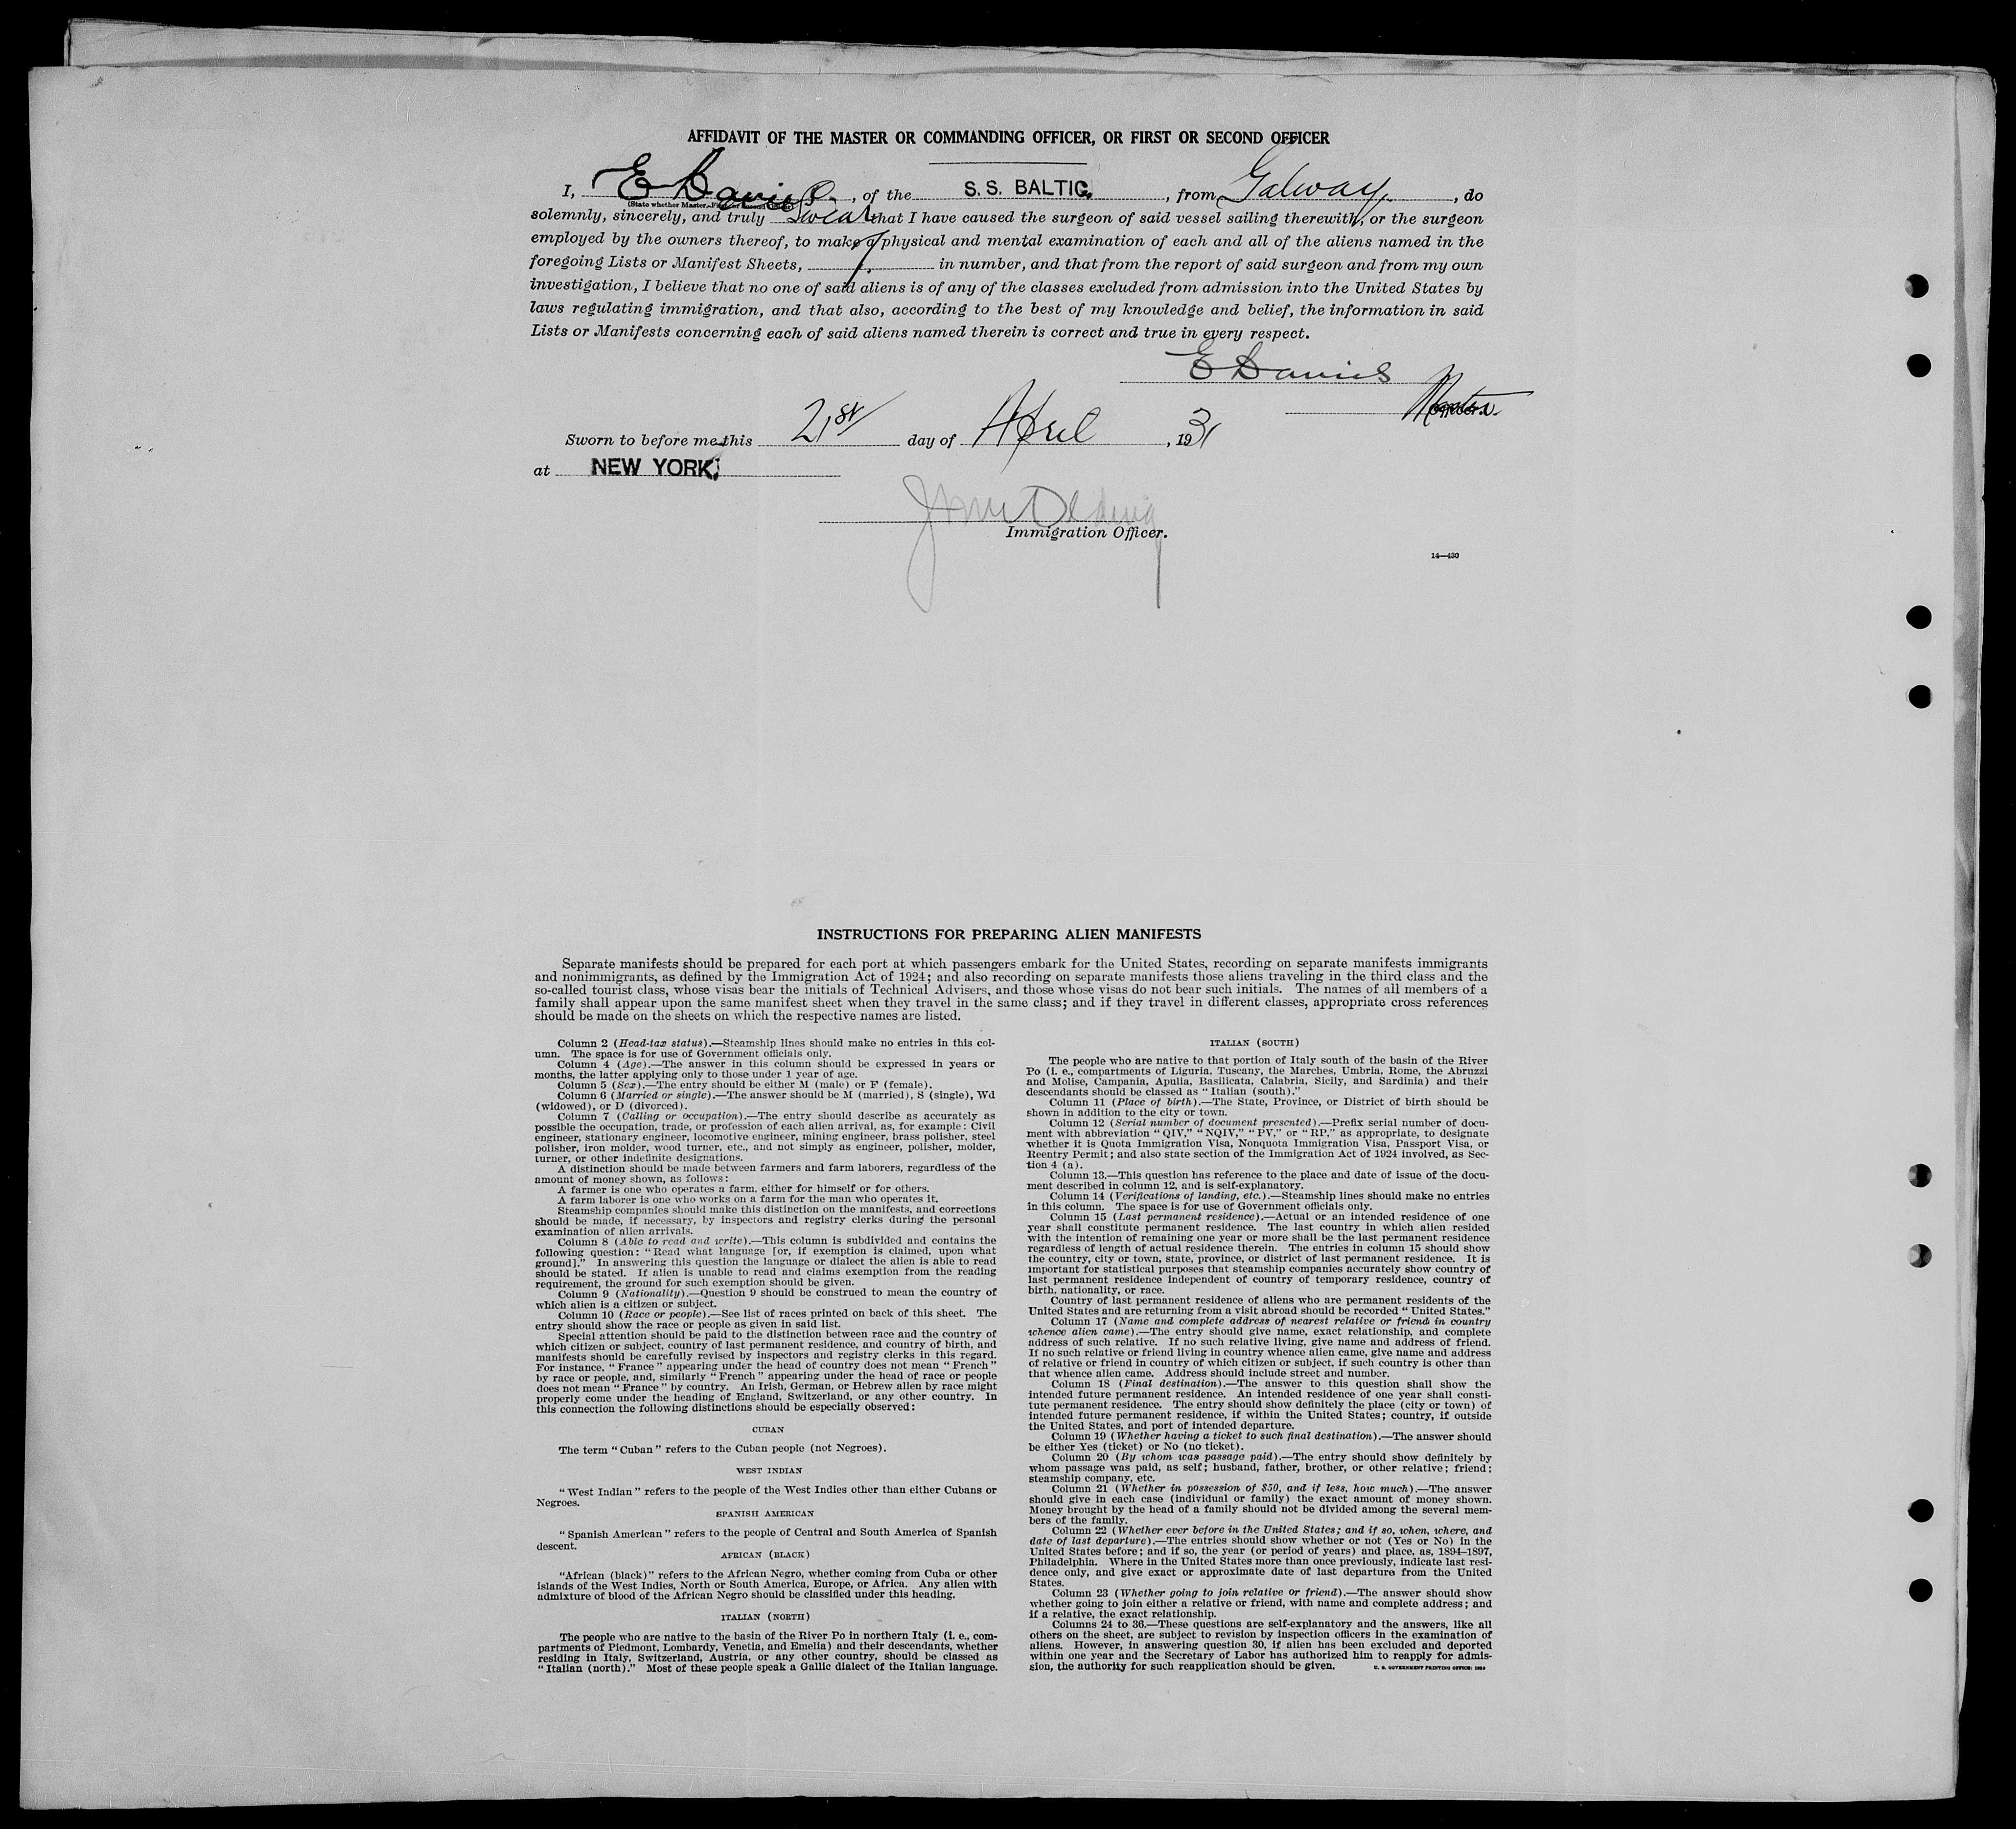 AFFIDAVIT OF THE MASTER OR COMMANDING OFFICER, OR FIRST OR SECOND OFFICER
I, E Davies, of the S. S. BALTIC, from Galway, do
(State whether Master, First or Second Officer)
solemnly, sincerely, and truly Swear that I have caused the surgeon of said vessel sailing therewith, or the surgeon
employed by the owners thereof, to make a physical and mental examination of each and all of the aliens named in the
foregoing Lists or Manifest Sheets, 7. in number, and that from the report of said surgeon and from my own
investigation, I believe that no one of said aliens is of any of the classes excluded from admission into the United States by
laws regulating immigration, and that also, according to the best of my knowledge and belief, the information in said
Lists or Manifests concerning each of said aliens named therein is correct and true in every respect.
E Davies
Master
Sworn to before me this 21st day of April, 1931
at NEW YORK
Immigration Officer.
14—430
INSTRUCTIONS FOR PREPARING ALIEN MANIFESTS
Separate manifests should be prepared for each port at which passengers embark for the United States, recording on separate manifests immigrants
and nonimmigrants, as defined by the Immigration Act of 1924; and also recording on separate manifests those aliens traveling in the third class and the
so-called tourist class, whose visas bear the initials of Technical Advisers, and those whose visas do not bear such initials. The names of all members of a
family shall appear upon the same manifest sheet when they travel in the same class; and if they travel in different classes, appropriate cross references
should be made on the sheets on which the respective names are listed.
Column 2 (Head-tax status).—Steamship lines should make no entries in this col-
umn. The space is for use of Government officials only.
Column 4 (Age).—The answer in this column should be expressed in years or
months, the latter applying only to those under 1 year of age.
Column 5 (Sex).—The entry should be either M (male) or F (female).
Column 6 (Married or single).—The answer should be M (married), S (single), Wd
(widowed), or D (divorced).
Column 7 (Calling or occupation).—The entry should describe as accurately as
possible the occupation, trade, or profession of each alien arrival, as, for example: Civil
engineer, stationary engineer, locomotive engineer, mining engineer, brass polisher, steel
polisher, iron molder, wood turner, etc., and not simply as engineer, polisher, molder,
turner, or other indefinite designations.
A distinction should be made between farmers and farm laborers, regardless of the
amount of money shown, as follows:
A farmer is one who operates a farm, either for himself or for others.
A farm laborer is one who works on a farm for the man who operates it.
Steamship companies should make this distinction on the manifests, and corrections
should be made, if necessary, by inspectors and registry clerks during the personal
examination of alien arrivals.
Column 8 (Able to read and write).—This column is subdivided and contains the
following question: "Read what language [or, if exemption is claimed, upon what
ground]." In answering this question the language or dialect the alien is able to read
should be stated. If alien is unable to read and claims exemption from the reading
requirement, the ground for such exemption should be given.
Column 9 (Nationality).—Question 9 should be construed to mean the country of
which alien is a citizen or subject.
Column 10 (Race or people).—See list of races printed on back of this sheet. The
entry should show the race or people as given in said list.
Special attention should be paid to the distinction between race and the country of
which citizen or subject, country of last permanent residence, and country of birth, and
manifests should be carefully revised by inspectors and registry clerks in this regard.
For instance, "France" appearing under the head of country does not mean "French"
by race or people, and, similarly "French" appearing under the head of race or people
does not mean "France" by country. An Irish, German, or Hebrew alien by race might
properly come under the heading of England, Switzerland, or any other country. In
this connection the following distinctions should be especially observed:
CUBAN
The term "Cuban" refers to the Cuban people (not Negroes).
WEST INDIAN
"West Indian" refers to the people of the West Indies other than either Cubans or
Negroes.
SPANISH AMERICAN
"Spanish American" refers to the people of Central and South America of Spanish
descent.
AFRICAN (BLACK)
"African (black)" refers to the African Negro, whether coming from Cuba or other
islands of the West Indies, North or South America, Europe, or Africa. Any alien with
admixture of blood of the African Negro should be classified under this heading.
ITALIAN (NORTH)
The people who are native to the basin of the River Po in northern Italy (i. e., com-
partments of Piedmont, Lombardy, Venetia, and Emelia) and their descendants, whether
residing in Italy, Switzerland, Austria, or any other country, should be classed as
"Italian (north)." Most of these people speak a Gallic dialect of the Italian language.
ITALIAN (SOUTH)
The people who are native to that portion of Italy south of the basin of the River
Po (i. e., compartments of Liguria, Tuscany, the Marches, Umbria, Rome, the Abruzzi
and Molise, Campania, Apulia, Basilicata, Calabria, Sicily, and Sardinia) and their
descendants should be classed as "Italian (south)."
Column 11 (Place of birth).—The State, Province, or District of birth should be
shown in addition to the city or town.
Column 12 (Serial number of document presented).—Prefix serial number of docu-
ment with abbreviation "QIV," "NQIV," "PV," or "RP," as appropriate, to designate
whether it is Quota Immigration Visa, Nonquota Immigration Visa, Passport Visa, or
Reentry Permit; and also state section of the Immigration Act of 1924 involved, as Sec-
tion 4 (a).
Column 13.—This question has reference to the place and date of issue of the docu-
ment described in column 12, and is self-explanatory.
Column 14 (Verifications of landing, etc.).—Steamship lines should make no entries
in this column. The space is for use of Government officials only.
Column 15 (Last permanent residence).—Actual or an intended residence of one
year shall constitute permanent residence. The last country in which alien resided
with the intention of remaining one year or more shall be the last permanent residence
regardless of length of actual residence therein. The entries in column 15 should show
the country, city or town, state, province, or district of last permanent residence. It is
important for statistical purposes that steamship companies accurately show country of
last permanent residence independent of country of temporary residence, country of
birth, nationality, or race.
Country of last permanent residence of aliens who are permanent residents of the
United States and are returning from a visit abroad should be recorded "United States."
Column 17 (Name and complete address of nearest relative or friend in country
whence alien came).—The entry should give name, exact relationship, and complete
address of such relative. If no such relative living, give name and address of friend.
If no such relative or friend living in country whence alien came, give name and address
of relative or friend in country of which citizen or subject, if such country is other than
that whence alien came. Address should include street and number.
Column 18 (Final destination).—The answer to this question shall show the
intended future permanent residence. An intended residence of one year shall consti-
tute permanent residence. The entry should show definitely the place (city or town) of
intended future permanent residence, if within the United States; country, if outside
the United States, and port of intended departure.
Column 19 (Whether having a ticket to such final destination).—The answer should
be either Yes (ticket) or No (no ticket).
Column 20 (By whom was passage paid).—The entry should show definitely by
whom passage was paid, as self; husband, father, brother, or other relative; friend;
steamship company, etc.
Column 21 (Whether in possession of $50, and if less, how much).—The answer
should give in each case (individual or family) the exact amount of money shown.
Money brought by the head of a family should not be divided among the several mem-
bers of the family.
Column 22 (Whether ever before in the United States; and if so, when, where, and
date of last departure).—The entries should show whether or not (Yes or No) in the
United States before; and if so, the year (or period of years) and place, as, 1894–1897,
Philadelphia. Where in the United States more than once previously, indicate last resi-
dence only, and give exact or approximate date of last departure from the United
States.
Column 23 (Whether going to join relative or friend).—The answer should show
whether going to join either a relative or friend, with name and complete address; and
if a relative, the exact relationship.
Columns 24 to 36.—These questions are self-explanatory and the answers, like all
others on the sheet, are subject to revision by inspection officers in the examination of
aliens. However, in answering question 30, if alien has been excluded and deported
within one year and the Secretary of Labor has authorized him to reapply for admis-
sion, the authority for such reapplication should be given.
U. S. GOVERNMENT PRINTING OFFICE: